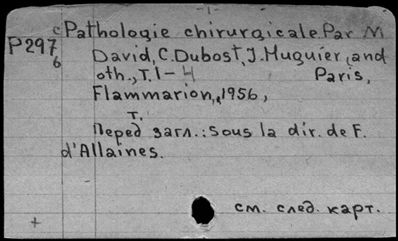 -1-
c Pathologie chirurgicale. Par M
P297 David, C. Dubost, J. Huguier, and
6 oth., T. 1-4 Paris,
Flammarion, 1956,
т.
Перед загл.: sous la dir. de F.
d'Allaines.
см. след. карт.
+